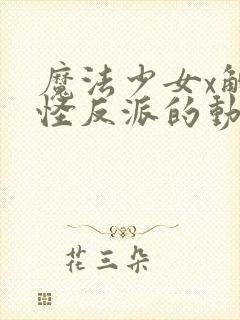 魔法少女x觸
怪反派的動
花三朵